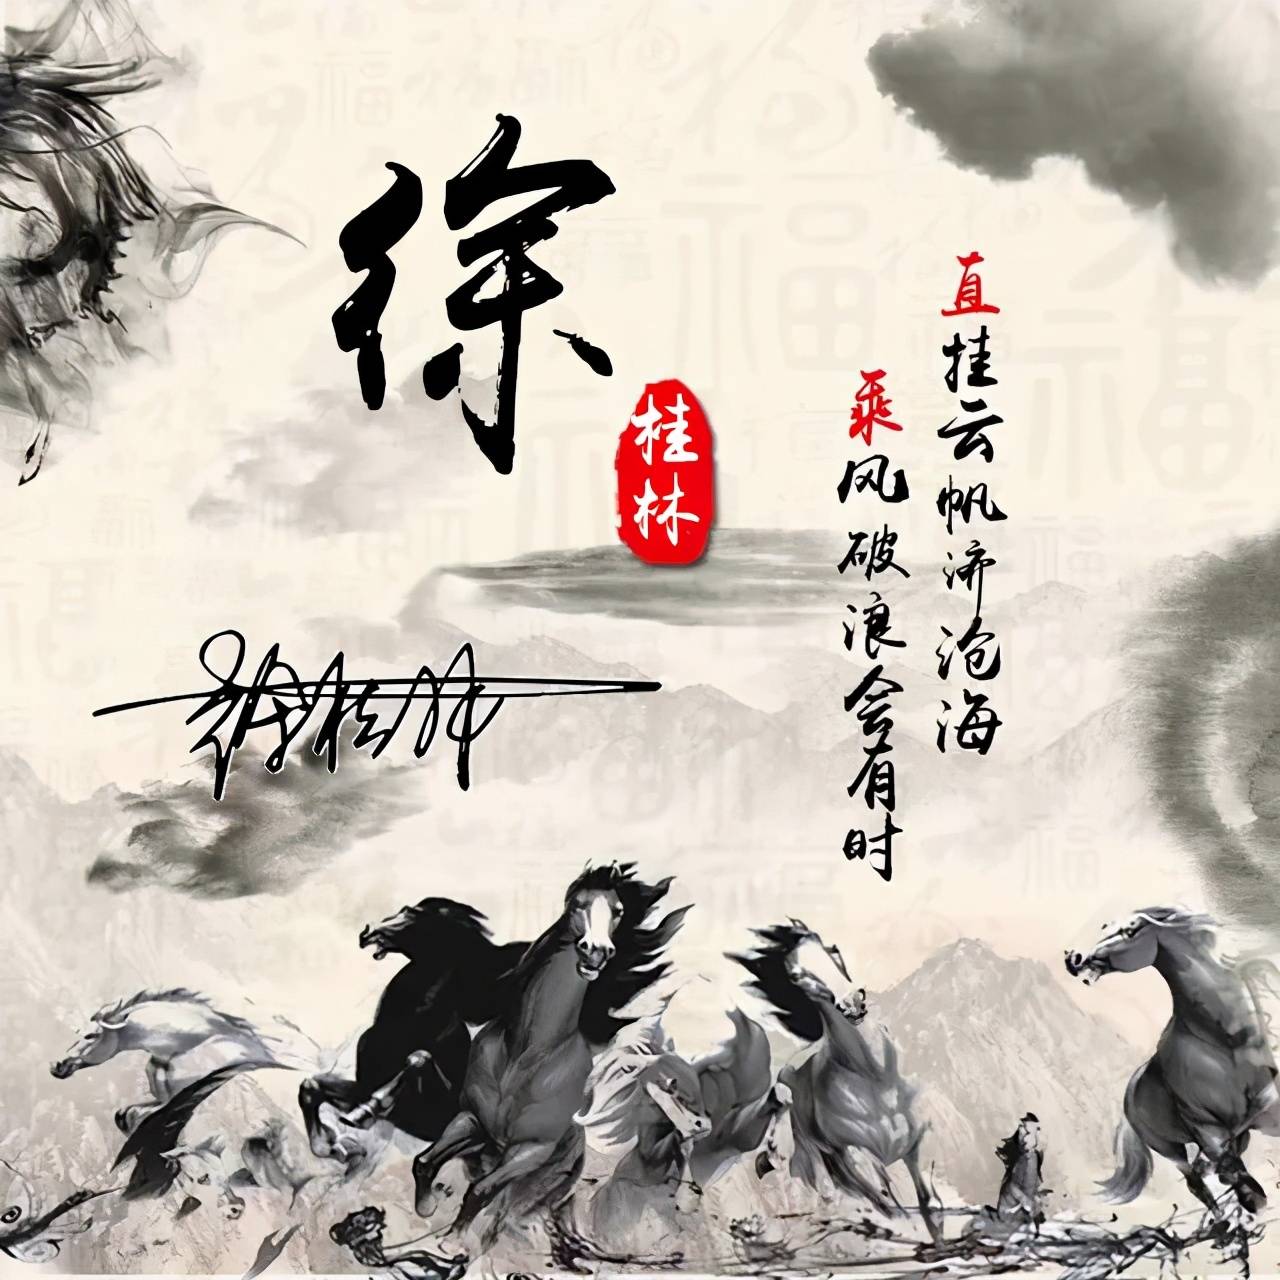 徐
桂林
直挂云帆济沧海
乘风破浪会有时
徐桂林
福